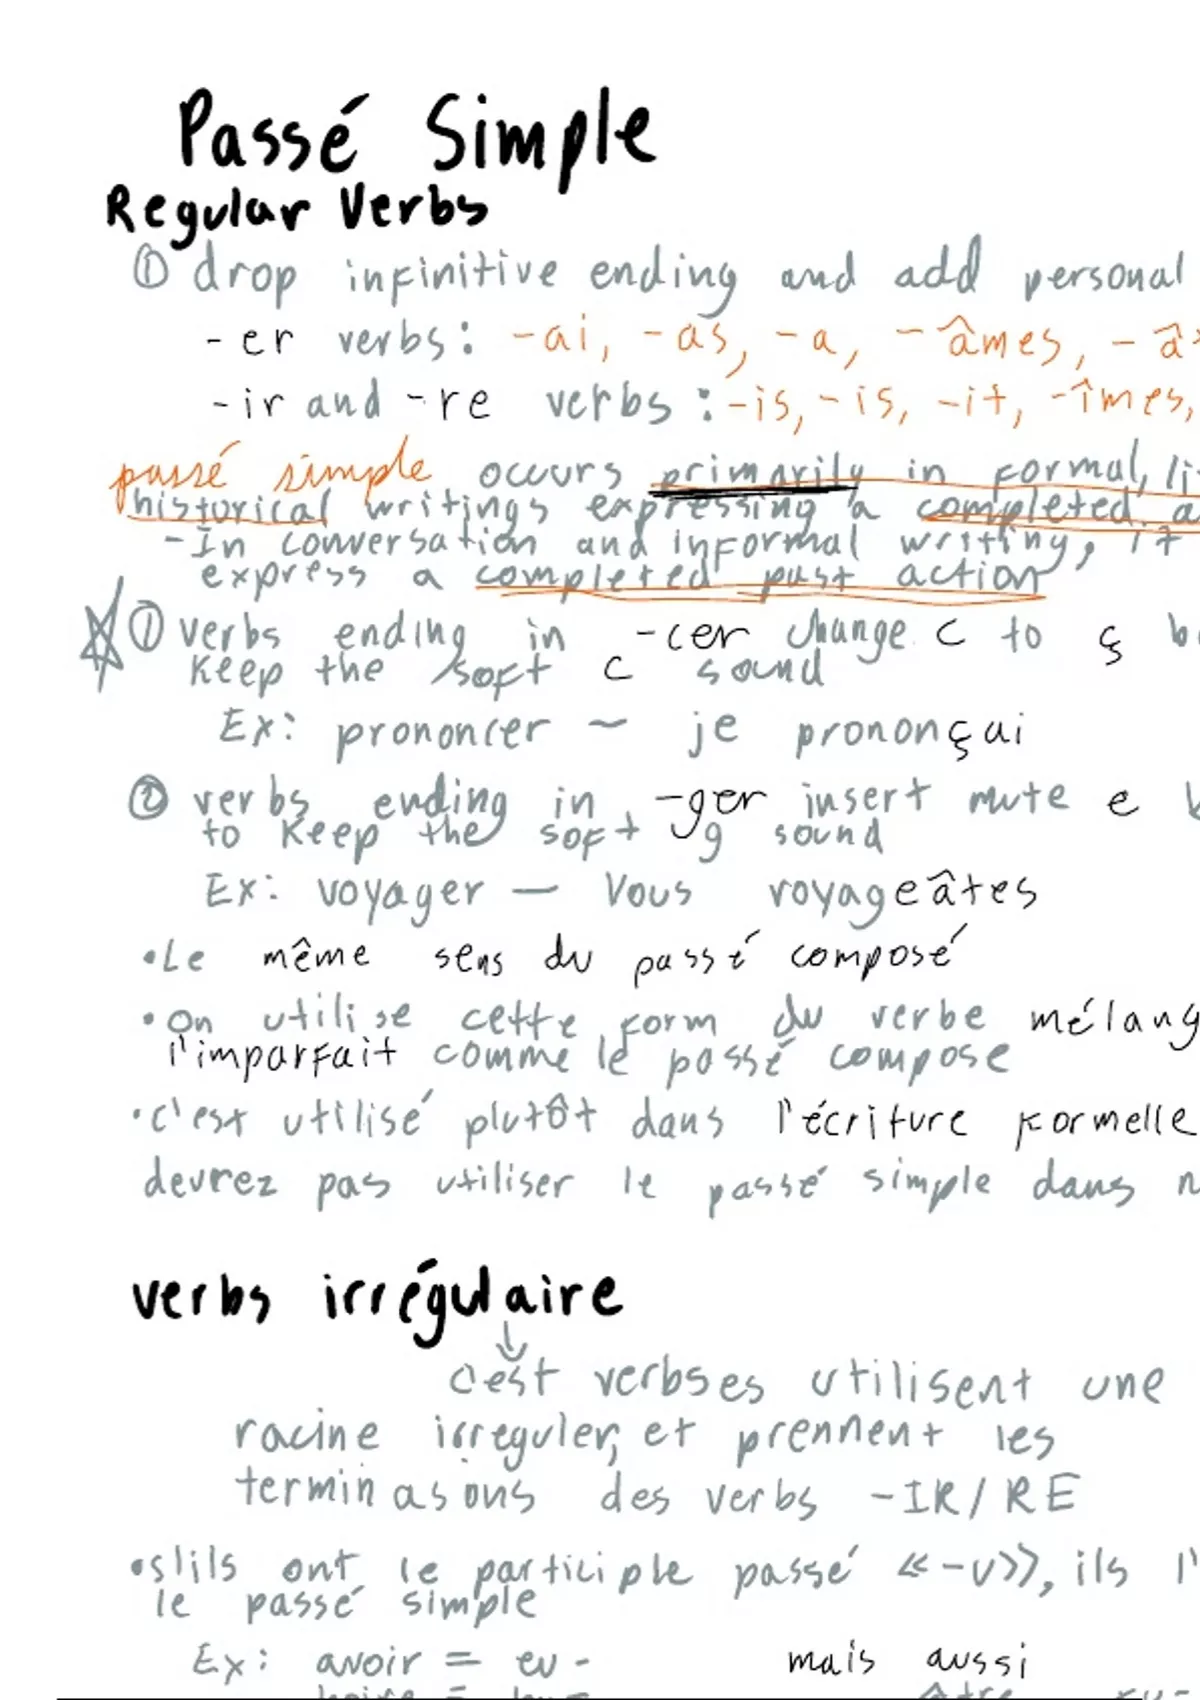 Passé Simple
Regular Verbs
① drop infinitive ending and add personal
-er verbs: -ai, -as, -a, -âmes, -â
-ir and -re verbs: -is, -is, -it, -îmes,
passé simple occurs primarily in formal, li
historical writings expressing a completed a
-In conversation and informal writing, it
express a completed past action
① verbs ending in -cer change c to ç b
keep the soft c sound
Ex: prononcer ~ je prononçai
② verbs ending in -ger insert mute e b
to keep the soft g sound
Ex: voyager — Vous voyageâtes
•Le même sens du passé composé
•On utilise cette form du verbe mélang
l'imparfait comme le passé compose
•c'est utilisé plutôt dans l'écriture formelle
devrez pas utiliser le passé simple dans n
verbs irrégulaire
↓
c'est verbses utilisent une
racine irreguler, et prennent les
terminasions des verbs -IR/RE
•s'ils ont le participle passé «-u», ils l'
le passé simple
Ex: avoir = eu- mais aussi